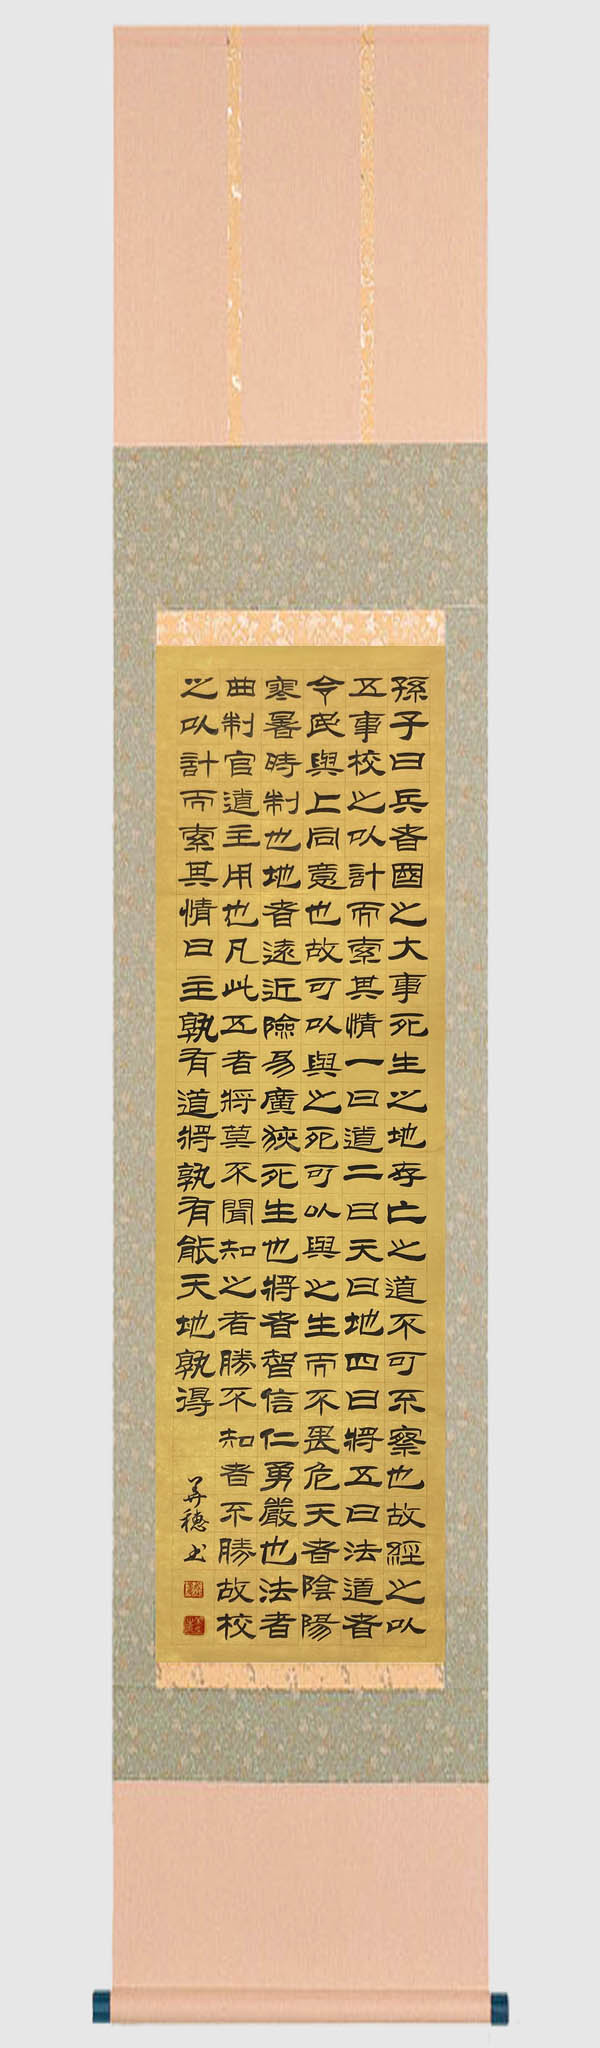 孫子曰兵者國之大事死生之地存亡之道不可不察也故經之以
五事校之以計而索其情一曰道二曰天曰地四曰將五曰法道者
令民與上同意也故可以與之死可以與之生而不畏危天者陰陽
寒暑時制也地者遠近險易廣狹死生也將者智信仁勇嚴也法者
曲制官道主用也凡此五者將莫不聞知之者勝不知者不勝故校
之以計而索其情曰主孰有道將孰有能天地孰得
穂書